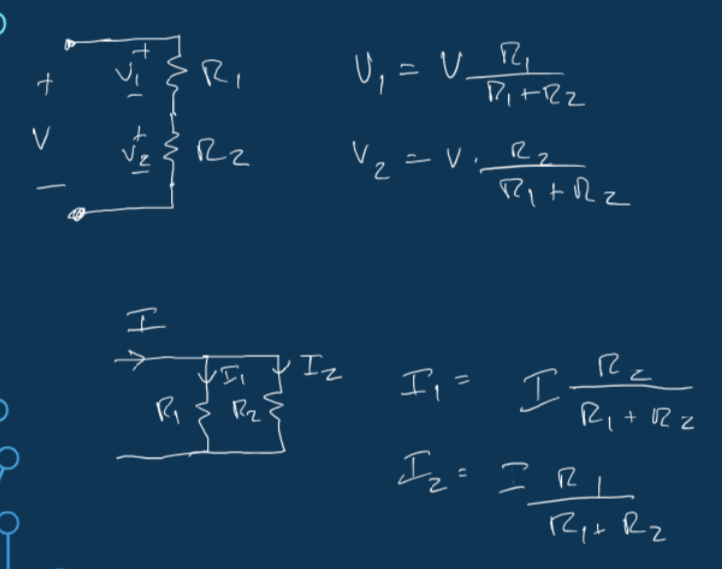 +
V
−
+
V₁
−
R₁
+
V₂
−
R₂
V₁ = V R₁/(R₁+R₂)
V₂ = V · R₂/(R₁+R₂)
I
I₁
I₂
R₁
R₂
I₁ = I R₂/(R₁+R₂)
I₂ = I R₁/(R₁+R₂)